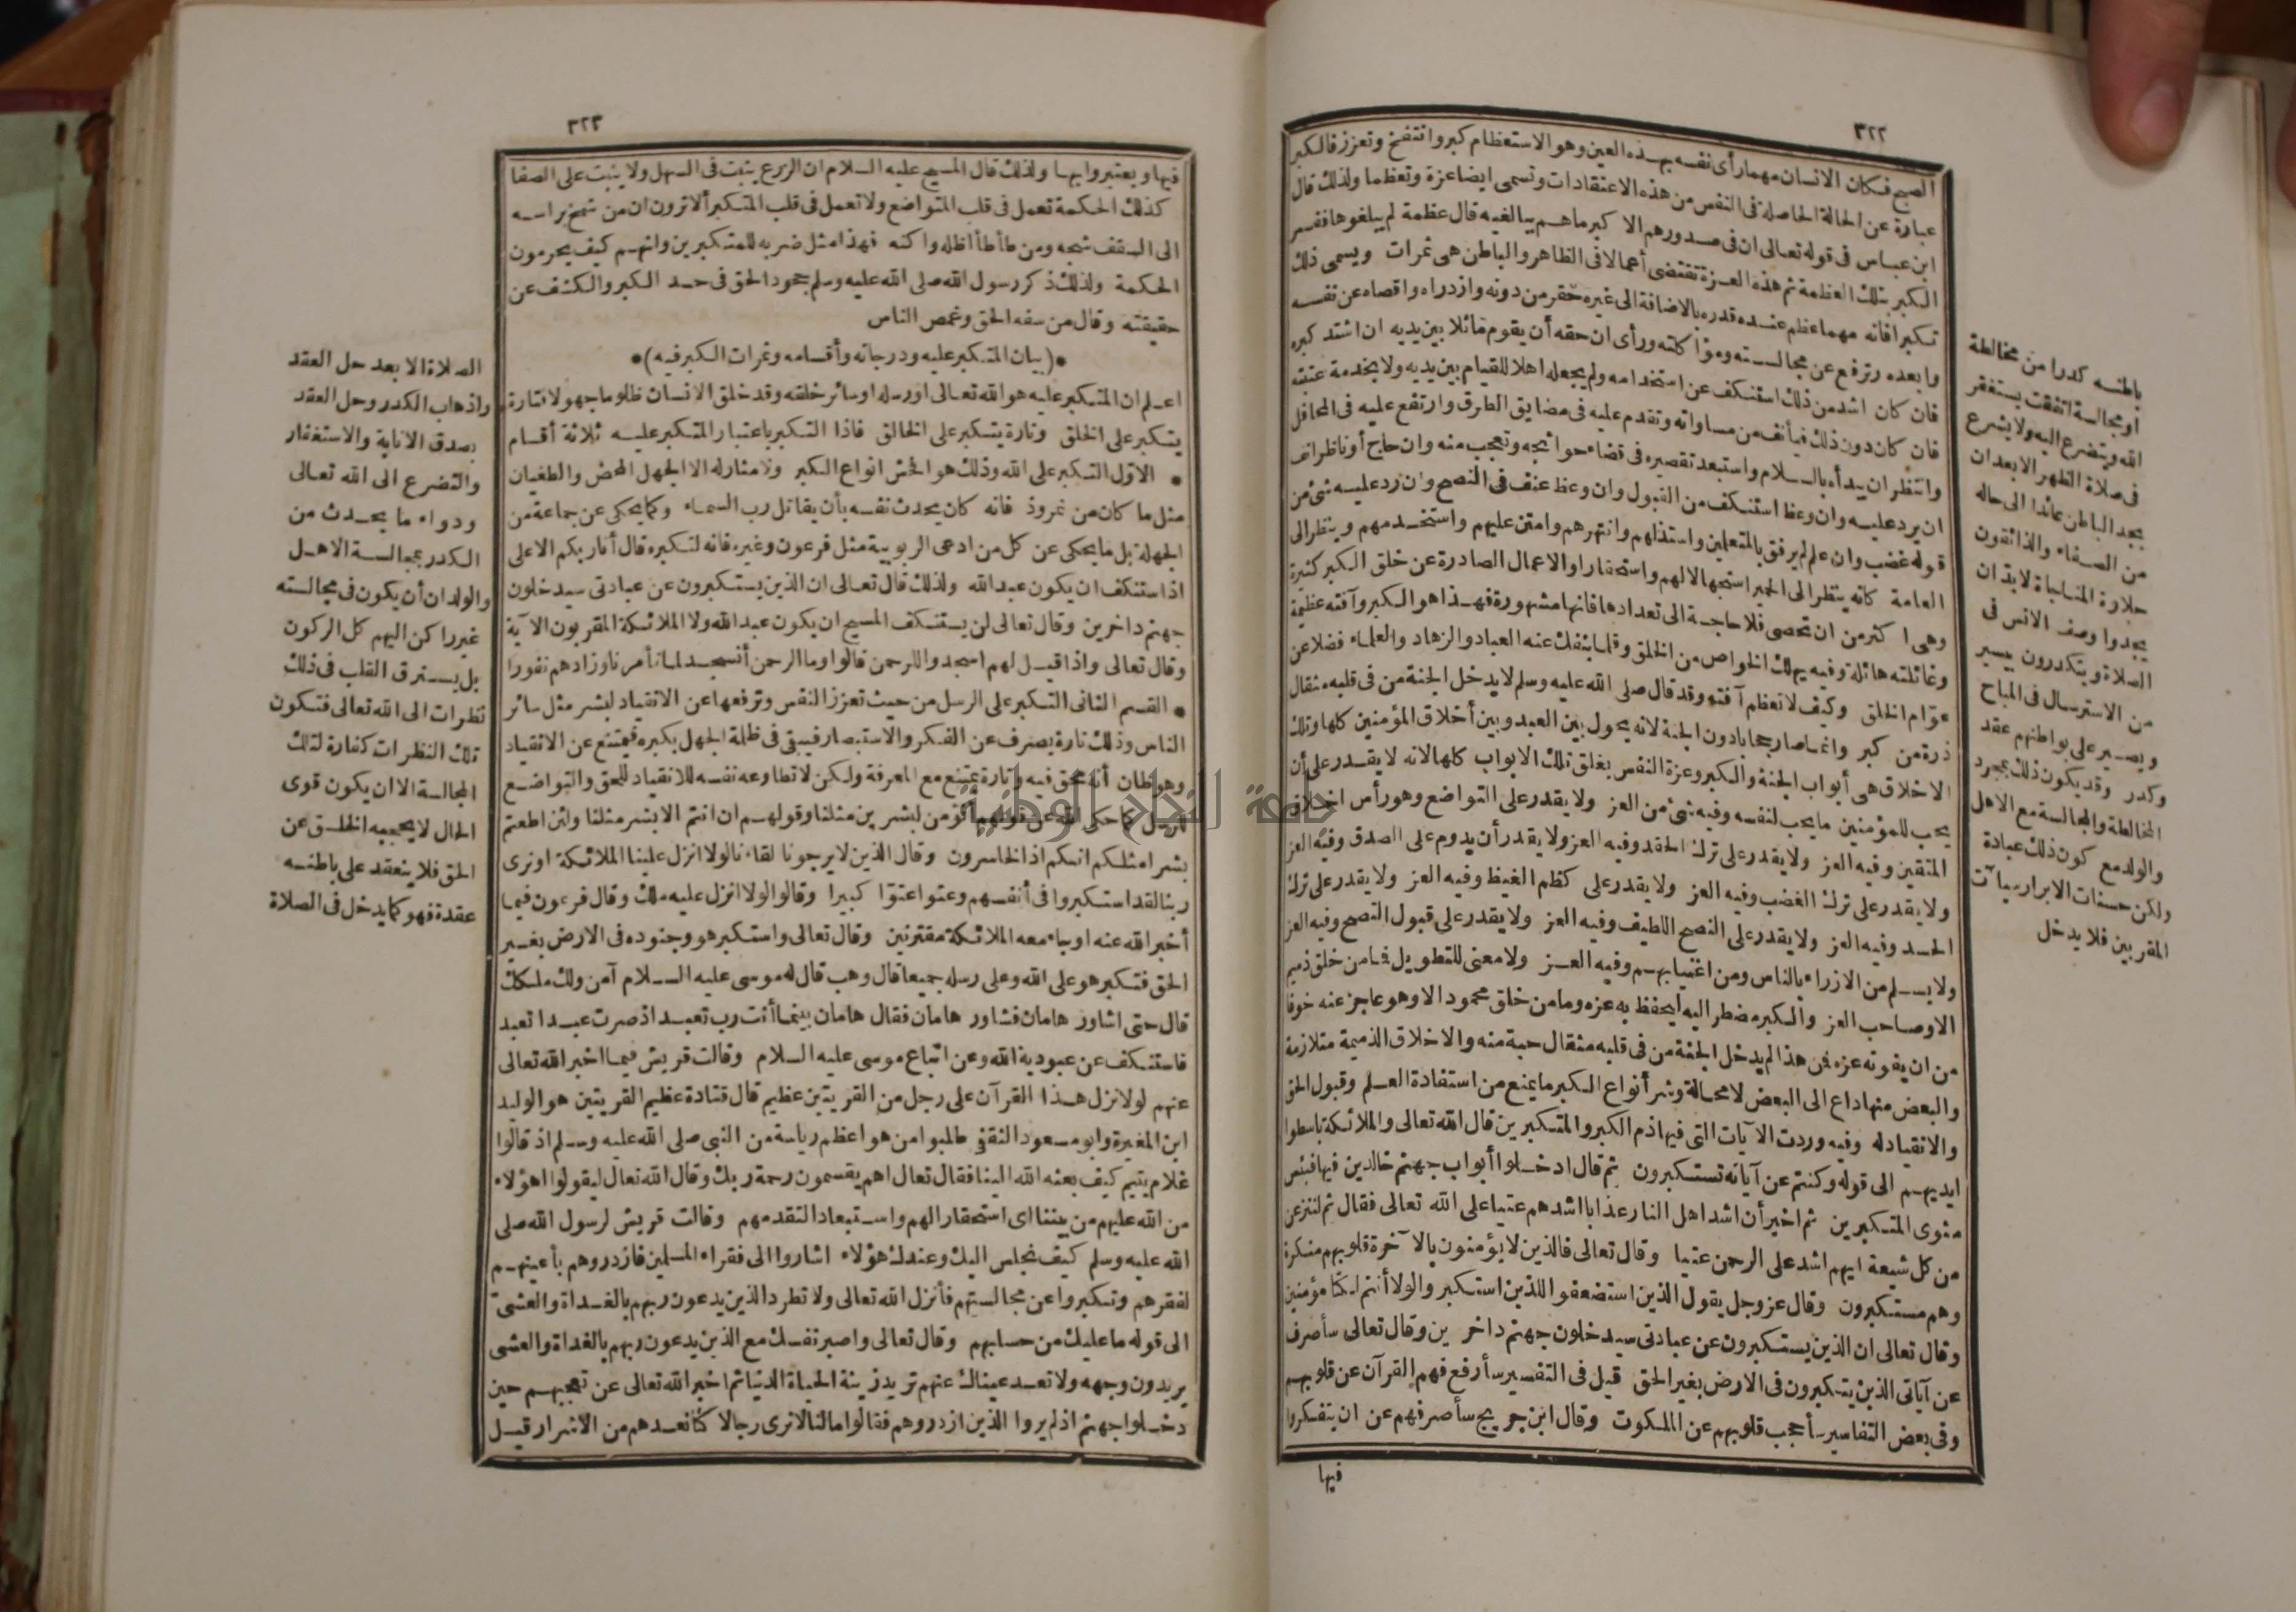 ٣٢٢
الصبح فكان الانسان مهما رأى نفسه بهذه العين وهو الاستعظام كبر وانتفخ وتعزز فالكبر
عبارة عن الحالة الحاصلة فى النفس من هذه الاعتقادات وتسمى ايضا عزة وتعظما ولذلك قال
ابن عباس فى قوله تعالى ان فى صدورهم الا كبر ما هم ببالغيه قال عظمة لم يبلغوها ففسر
الكبر بتلك العظمة ثم هذه العزة تقتضى أعمالا فى الظاهر والباطن هى ثمرات ويسمى ذلك
تكبرا فانه مهما عظم عنده قدره بالاضافة الى غيره حقر من دونه وازدراه واقصاه عن نفسه
وابعده وترفع عن مجالسته ومؤاكلته ورأى ان حقه أن يقوم ماثلا بين يديه ان اشتد كبره
فان كان اشد من ذلك استنكف عن استخدامه ولم يجعله اهلا للقيام بين يديه ولا بخدمة عتبته
فان كان دون ذلك فيأنف من مساواته وتقدم عليه فى مضايق الطرق وارتفع عليه فى المحافل
وانتظر ان يبدأه بالسلام واستبعد تقصيره فى قضاء حوائجه وتعجب منه وان حاج أو ناظر انف
ان يرد عليه وان وعظ استنكف من القبول وان وعظ عنف فى النصح وان رد عليه شئ من
قوله غضب وان علم لم يرفق بالمتعلمين واستذلهم وانتهرهم وامتن عليهم واستخدمهم وينظر الى
العامة كأنه ينظر الى الحمير استجهالا لهم واستحقارا والاعمال الصادرة عن خلق الكبر كثيرة
وهى اكثر من ان تحصى فلا حاجة الى تعدادها فانها مشهورة فهذا هو الكبر وآفته عظيمة
وغائلته هائلة وفيه يهلك الخواص من الخلق وقلما ينفك عنه العباد والزهاد والعلماء فضلا عن
عوّام الخلق وكيف لا تعظم آفته وقد قال صلى الله عليه وسلم لا يدخل الجنة من فى قلبه مثقال
ذرة من كبر وانما صار حجابا دون الجنة لانه يحول بين العبد وبين أخلاق المؤمنين كلها وتلك
الاخلاق هى أبواب الجنة والكبر وعزة النفس يغلق تلك الابواب كلها لانه لا يقدر على أن
يحب للمؤمنين ما يحب لنفسه وفيه شئ من العز ولا يقدر على التواضع وهو رأس اخلاق
المتقين وفيه العز ولا يقدر على ترك الحقد وفيه العز ولا يقدر أن يدوم على الصدق وفيه العز
ولا يقدر على ترك الغضب وفيه العز ولا يقدر على كظم الغيظ وفيه العز ولا يقدر على ترك
الحسد وفيه العز ولا يقدر على النصح اللطيف وفيه العز ولا يقدر على قبول النصح وفيه العز
ولا يسلم من الازراء بالناس ومن اغتيابهم وفيه العز ولا معنى للتطويل فما من خلق ذميم
الا وصاحب العز والكبر مضطر اليه ليحفظ به عزه وما من خلق محمود الا وهو عاجز عنه خوفا
من ان يفوته عزه فمن هذا لم يدخل الجنة من فى قلبه مثقال حبة منه والاخلاق الذميمة متلازمة
والبعض منها داع الى البعض لا محالة وشر أنواع الكبر ما يمنع من استفادة العلم وقبول الحق
والانقياد له وفيه وردت الآيات التى فيها ذم الكبر والمتكبرين قال الله تعالى والملائكة باسطوا
ايديهم الى قوله وكنتم عن آياته تستكبرون ثم قال ادخلوا أبواب جهنم خالدين فيها فبئس
مثوى المتكبرين ثم اخبر أن اشد اهل النار عذابا اشدهم عتيا على الله تعالى فقال ثم لننزعن
من كل شيعة ايهم اشد على الرحمن عتيا وقال تعالى فالذين لا يؤمنون بالآخرة قلوبهم منكرة
وهم مستكبرون وقال عز وجل يقول الذين استضعفوا للذين استكبروا لولا أنتم لكنا مؤمنين
وقال تعالى ان الذين يستكبرون عن عبادتى سيدخلون جهنم داخرين وقال تعالى سأصرف
عن آياتى الذين يتكبرون فى الارض بغير الحق قيل فى التفسير سأرفع فهم القرآن عن قلوبهم
وفى بعض التفاسير سأحجب قلوبهم عن الملكوت وقال ابن جريج سأصرفهم عن ان يتفكروا
فيها
باطنه كدرا من مخالطة
او مجالسة اتفقت يستغفر
الله ويتضرع اليه ولا يشرع
فى صلاة الظهر الا بعد ان
يجد الباطن عائدا الى حاله
من الصفاء والذائقون
حلاوة المناجاة لا بد ان
يجدوا وصف الانس فى
الصلاة ويتكدرون بيسير
من الاسترسال فى المباح
ويصير على بواطنهم عقد
وكدر وقد يكون ذلك بمجرد
المخالطة والمجالسة مع الاهل
والولد مع كون ذلك عبادة
ولكن حسنات الابرار سيآت
المقربين فلا يدخل
٣٢٣
فيها ويعتبروا بها ولذلك قال المسيح عليه السلام ان الزرع ينبت فى السهل ولا ينبت على الصفا
كذلك الحكمة تعمل فى قلب المتواضع ولا تعمل فى قلب المتكبر ألا ترون ان من شمخ براسه
الى السقف شجه ومن طأطأ اظله واكنه فهذا مثل ضربه للمتكبرين وانهم كيف يحرمون
الحكمة ولذلك ذكر رسول الله صلى الله عليه وسلم جحود الحق فى حد الكبر والكشف عن
حقيقته وقال من سفه الحق وغمص الناس
•(بيان المتكبر عليه ودرجاته وأقسامه وثمرات الكبر فيه)•
اعلم ان المتكبر عليه هو الله تعالى او رسله او سائر خلقه وقد خلق الانسان ظلوما جهولا فتارة
يتكبر على الخلق وتارة يتكبر على الخالق فاذا التكبر باعتبار المتكبر عليه ثلاثة أقسام
• الاوّل التكبر على الله وذلك هو افحش انواع الكبر ولا مثار له الا الجهل المحض والطغيان
مثل ما كان من نمروذ فانه كان يحدث نفسه بأن يقاتل رب السماء وكما يحكى عن جماعة من
الجهلة بل ما يحكى عن كل من ادعى الربوبية مثل فرعون وغيره فانه لتكبره قال أنا ربكم الاعلى
اذ استنكف ان يكون عبد الله ولذلك قال تعالى ان الذين يستكبرون عن عبادتى سيدخلون
جهنم داخرين وقال تعالى لن يستنكف المسيح ان يكون عبد الله ولا الملائكة المقربون الآية
وقال تعالى واذا قيل لهم اسجدوا للرحمن قالوا وما الرحمن أنسجد لما تأمرنا وزادهم نفورا
• القسم الثانى التكبر على الرسل من حيث تعزز النفس وترفعها عن الانقياد لبشر مثل سائر
الناس وذلك تارة يصرف عن الفكر والاستبصار فيبقى فى ظلمة الجهل بكبره فيمتنع عن الانقياد
وهو ظان أنه محق فيه وتارة يمتنع مع المعرفة ولكن لا تطاوعه نفسه للانقياد للحق والتواضع
للرسل كما حكى الله عن قولهم أنؤمن لبشرين مثلنا وقولهم ان انتم الا بشر مثلنا ولئن اطعتم
بشرا مثلكم انكم اذا لخاسرون وقال الذين لا يرجون لقاءنا لولا انزل علينا الملائكة او نرى
ربنا لقد استكبروا فى أنفسهم وعتوا عتوّا كبيرا وقالوا لولا انزل عليه ملك وقال فرعون فيما
أخبر الله عنه او جاء معه الملائكة مقترنين وقال تعالى واستكبر هو وجنوده فى الارض بغير
الحق فتكبر هو على الله وعلى رسله جميعا قال وهب قال له موسى عليه السلام آمن ولك ملكك
قال حتى اشاور هامان فشاور هامان فقال هامان بينما أنت رب تعبد اذ صرت عبدا تعبد
فاستنكف عن عبودية الله وعن اتباع موسى عليه السلام وقالت قريش فيما اخبر الله تعالى
عنهم لولا نزل هذا القرآن على رجل من القريتين عظيم قال قتادة عظيم القريتين هو الوليد
ابن المغيرة وابو مسعود الثقفى طلبوا من هو اعظم رياسة من النبى صلى الله عليه وسلم اذ قالوا
غلام يتيم كيف بعثه الله الينا فقال تعالى اهم يقسمون رحمة ربك وقال الله تعالى ليقولوا اهؤلاء
من الله عليهم من بيننا اى استحقارا لهم واستبعادا لتقدمهم وقالت قريش لرسول الله صلى
الله عليه وسلم كيف نجلس اليك وعندك هؤلاء اشاروا الى فقراء المسلمين فازدروهم بأعينهم
لفقرهم وتكبروا عن مجالستهم فأنزل الله تعالى ولا تطرد الذين يدعون ربهم بالغداة والعشىّ
الى قوله ما عليك من حسابهم وقال تعالى واصبر نفسك مع الذين يدعون ربهم بالغداة والعشى
يريدون وجهه ولا تعد عيناك عنهم تريد زينة الحياة الدنيا ثم اخبر الله تعالى عن تعجبهم حين
دخلوا جهنم اذ لم يروا الذين ازدروهم فقالوا ما لنا لا نرى رجالا كنا نعدهم من الاشرار قيل
الصلاة الا بعد حل العقد
واذهاب الكدر وحل العقد
بصدق الانابة والاستغفار
والتضرع الى الله تعالى
ودواء ما يحدث من
الكدر بمجالسة الاهل
والولد ان أن يكون فى مجالسته
غير راكن اليهم كل الركون
بل يسترق القلب فى ذلك
نظرات الى الله تعالى فتكون
تلك النظرات كفارة لتلك
المجالسة الا ان يكون قوى
الحال لا يحجبه الخلق عن
الحق فلا ينعقد على باطنه
عقدة فهو كما يدخل فى الصلاة
جامعة النجاح الوطنية